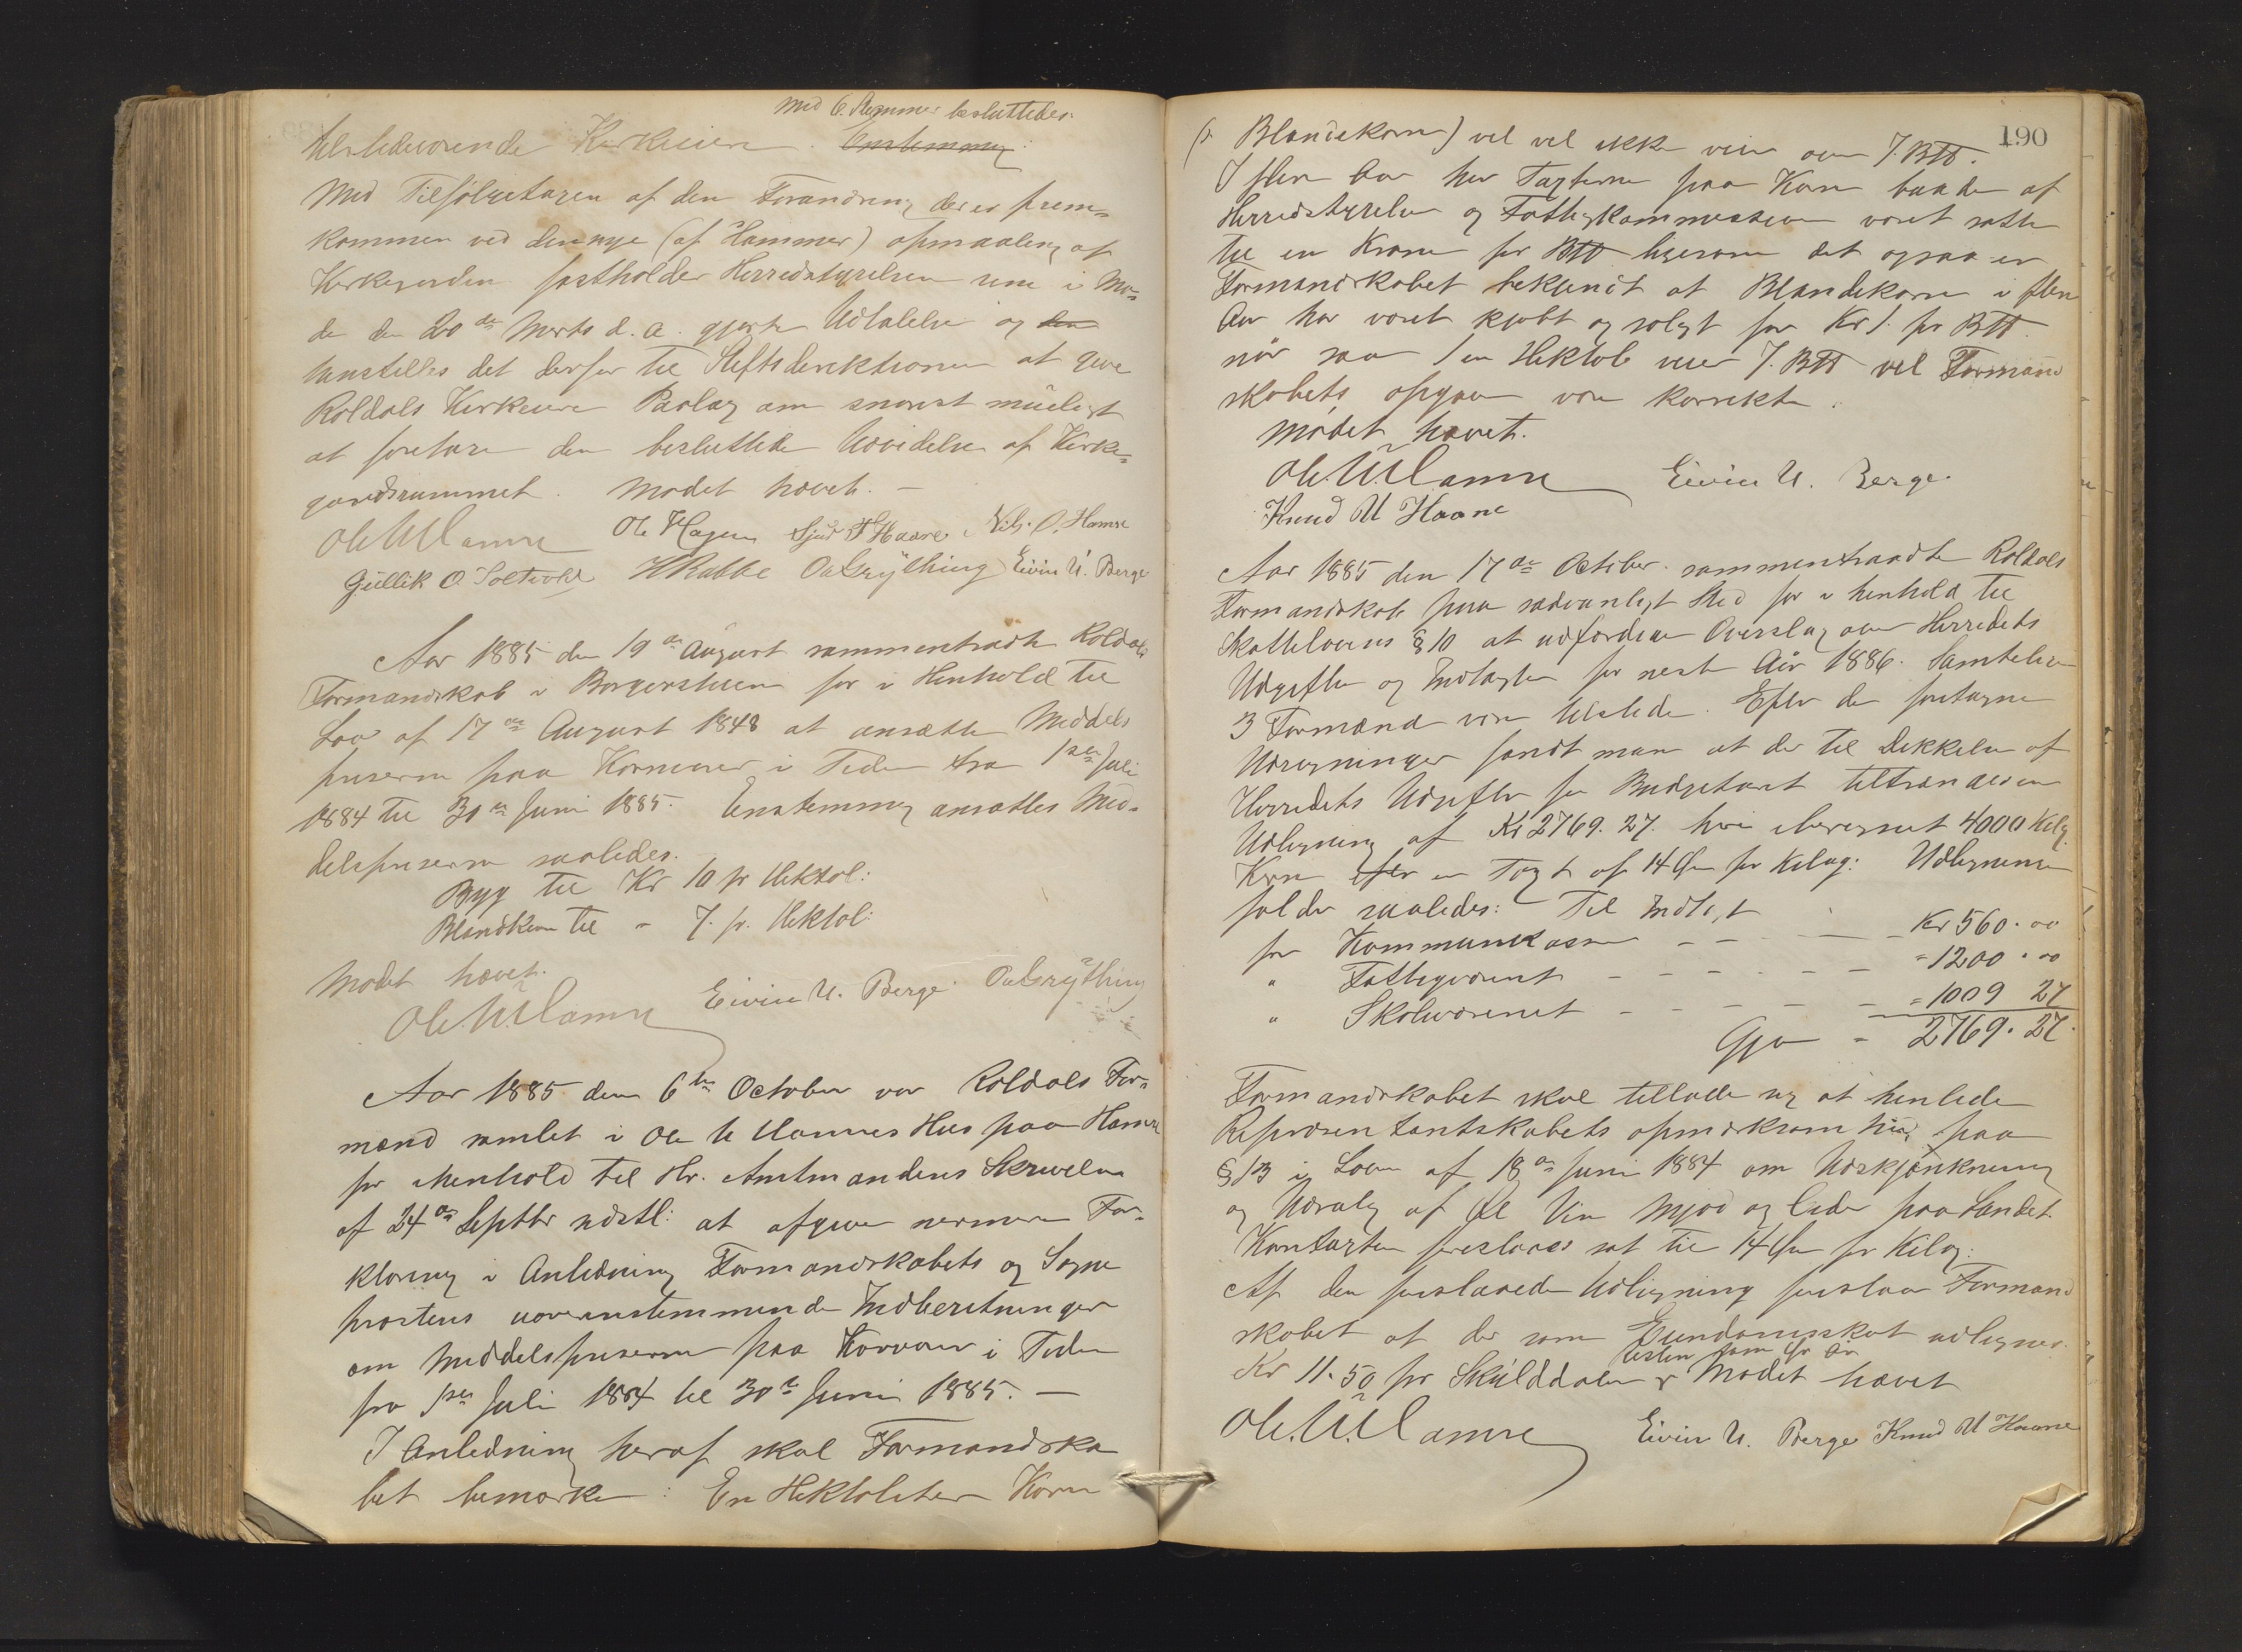 Med 6. Stemmer besluttedes:
tilstedeværende Kirkeeiere. Enstemmig
Med Tilføluetagen af den Forandring der er frem-
kommen ved den nye (af Hammer) opmaaling af
Kirkegarden fastholder Herredstyrelsen sine i Mø-
de den 20de Marts d. a. gjorte Udtalelse og den
henstilles det derfor til Stiftsdirektionen at give
Røldals Kirkeeiere Paalæg om snarest mueligt
at foretage den besluttede Udvidelse af Kirke-
gaardsrummet. Mødet hævet. —
Ole Hagen Sjur T Haare Nils. O. Hamre
Gullik O. Saltvold H Rabbe O Grytting Eivin U. Berge
Aar 1885 den 19de August sammentraadte Røldals
Formandskab i Borgerstuen for i Henhold til
Lov af 17de August 1848 at ansætte Middels
priserne paa Kornvarer i Tiden fra 1ste Juli
1884 til 30te Juni 1885. Enstemmig ansattes Mid-
delspriserne saaledes.
Byg til Kr 10 pr Hektol:
Blandkorn til - 7. pr. Hektol:
Mødet hævet.
Eivin U. Berge. O Grytting
Aar 1885 den 6te October var Røldals For-
mænd samlet i Ole U Hamres Hus paa Hamre
for ihenhold til Hr. Amtmandens Skrivelse
af 24de Septbr sidstl: at afgive nærmere For-
klaring i Anledning Formandskabets og Sogne
prestens uoverenstemmende Indberetninger
om Middelspriserne paa Kornvarer i Tiden
fra 1ste Juli 1884 til 30te Juni 1885. —
I Anledning heraf skal Formandska
bet bemærke: En Hektoliter Korn
190
(: Blandekorn) vel vel ikke veie over 7. Btt.
I flere Aar her Taxterne paa Korn baade af
Herredstyrelsen og Fattigkommissionen været satte
til en Krone pr Btt ligesom det ogsaa er
Formandskabet bekjendt at Blandekorn i flere
Aar har været kjøbt og solgt for Kr 1. pr Btt.
når saa 1 en Hektol veier 7. Btt vel Formand
skabets opgave være korrekte.
Mødet hævet.
Eivin U. Berge.
Knud U Haane
Aar 1885 den 17de October sammentraadte Røldals
Formandskab paa sædvanligt Sted for i henhold til
Skatteloven § 10 at udfærdige Overslag over Herredets
Udgifter og Indtægter for nest Aar 1886. Samtelige
3 Formænd vare tilstede. Efter de foretagne
Udregninger fandt man at der til Dekkelse af
Herredets Udgifter for Budgetaaret tiltrænges en
Udligning af Kr 2769. 27. hvori iberegnet 4000 Kilg.
Korn efter en Taxt af 14 Øre pr Kilog: Udligningen
falder saaledes: Til Indtægt
for Kommunekassen - - - - Kr 560. 00
" Fattigvæsenet - - - - - = 1200. 00
" Skolevæsenet - - - - = 1009 27
Gjør - 2769. 27.
Formandskabet skal tillade sig at henlede
Repræsentantskabets opmærksomhed paa
§ 13 i Loven af 18de Juni 1884 om Udskjænkning
og Udsalg af Øl Vin Mjød og Cider paa Landet.
Korntaxten foreslaaes sat til 14 Øre pr Kilog:
Af den foreslaaede Udligning foreslaar Formand
skabet at der som Eiendomsskat udlignes.
Kr 11. 50 pr Skylddaler Mødet hævet
Eivin U. Berge Knud U Haane